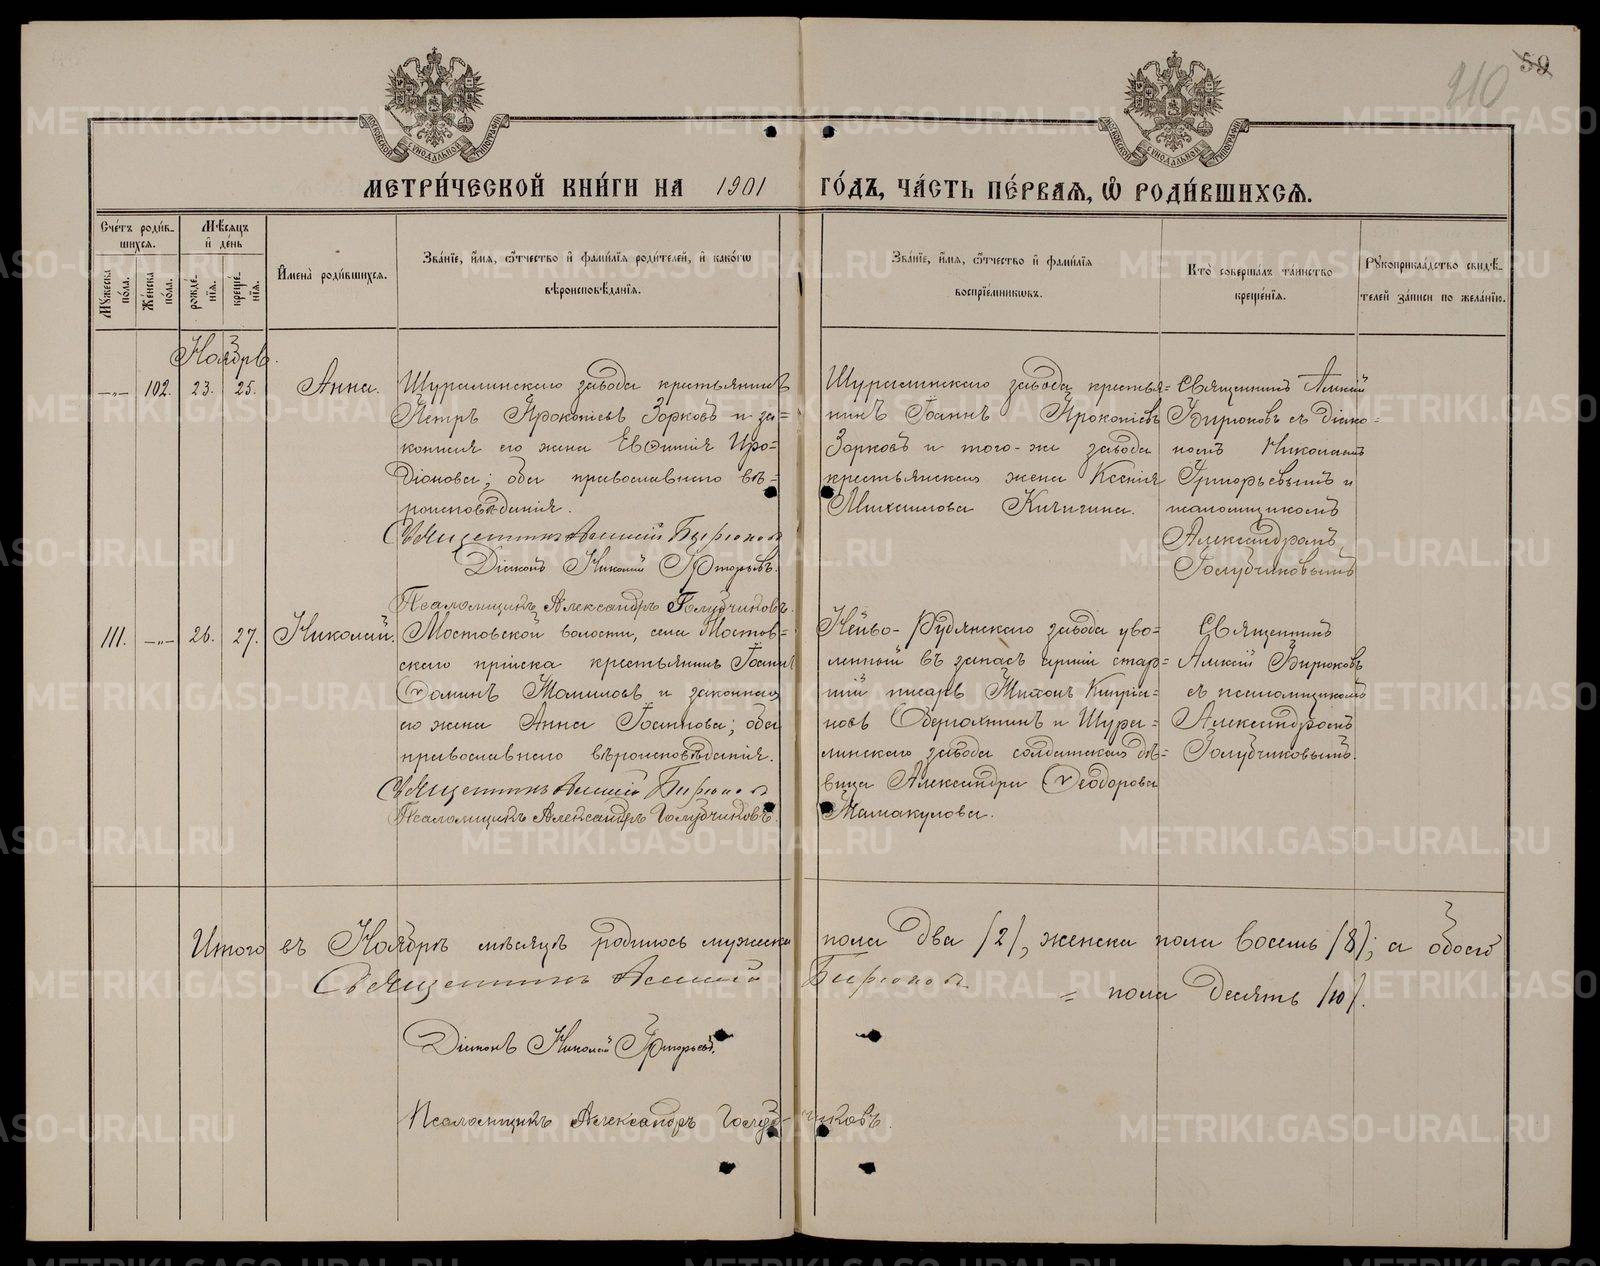 59
210
МОСКОВСКОЙ СѴНОДАЛЬНОЙ ТИПОГРАФІИ
МОСКОВСКОЙ СѴНОДАЛЬНОЙ ТИПОГРАФІИ
МЕТРИ́ЧЕСКОЙ КНИ́ГИ НА 1901 ГО́ДЪ, ЧА́СТЬ ПЕ́РВАѦ, Ѡ РОДИ́ВШИХСѦ.
Сче́тъ роди́в-
шихсѧ.
Мꙋ́жеска по́ла.
Же́нска по́ла.
Мѣ́сѧцъ
и҆ де́нь
рожде́-нїѧ.
креще́-нїѧ.
И҆мена̀ роди́вшихсѧ.
Зва́нїе, и҆́мѧ, ѻ҆́тчество и҆ фами́лїѧ роди́телей, и҆ како́гѡ
вѣроисповѣ́данїѧ.
Зва́нїе, и҆́мѧ, ѻ҆́тчество и҆ фами́лїѧ
воспрїе́мникѡвъ.
Кто̀ соверша́лъ та́инство
креще́нїѧ.
Рꙋкоприкла́дство свидѣ́-
телей за́писи по жела́нїю.
Ноябрь.
—„— 102. 23. 25. Анна.
Шуралинскаго завода крестьянинъ
Петръ Прокопіевъ Зорковъ и за=
конная его жена Евѳимія Иро=
діонова; оба православнаго вѣ=
роисповѣданія.
Священникъ Алексій Бирюковъ
Діаконъ Николай Григорьевъ.
Псаломщикъ Александръ Голубчиковъ.
Шуралинскаго завода крестья=
нинъ Іоаннъ Прокопіевъ
Зорковъ и того-же завода
крестьянская жена Ксенія
Михаилова Кичигина.
Священникъ Алексій
Бирюковъ съ діако=
номъ Николаемъ
Григорьевымъ и
псаломщикомъ
Александромъ
Голубчиковымъ
111. —„— 26. 27. Николай.
Мостовской волости, села Мостов=
скаго пріиска крестьянинъ Іоаннъ
Ѳоминъ Томиловъ и законная
его жена Анна Іоаннова; оба
православнаго вѣроисповѣданія.
Священникъ Алексій Бирюковъ
Псаломщикъ Александръ Голубчиковъ.
Нейво-Рудянскаго завода уво=
ленный въ запасъ арміи стар=
шій писарь Тихонъ Кипріа=
новъ Обергохтинъ и Шура=
линскаго завода солдатская дѣ=
вица Александра Ѳеодорова
Мамакулова.
Священникъ
Алексій Бирюковъ
съ псаломщикомъ
Александромъ
Голубчиковымъ.
Итого въ Ноябрѣ мѣсяцѣ родилось мужска пола два /2/, женска пола восемь /8/; а обоего
= пола десять /10/.
Священникъ Алексій Бирюковъ
Діаконъ Николай Григорьевъ.
Псаломщикъ Александръ Голубчиковъ.
METRIKI.GASO-URAL.RU